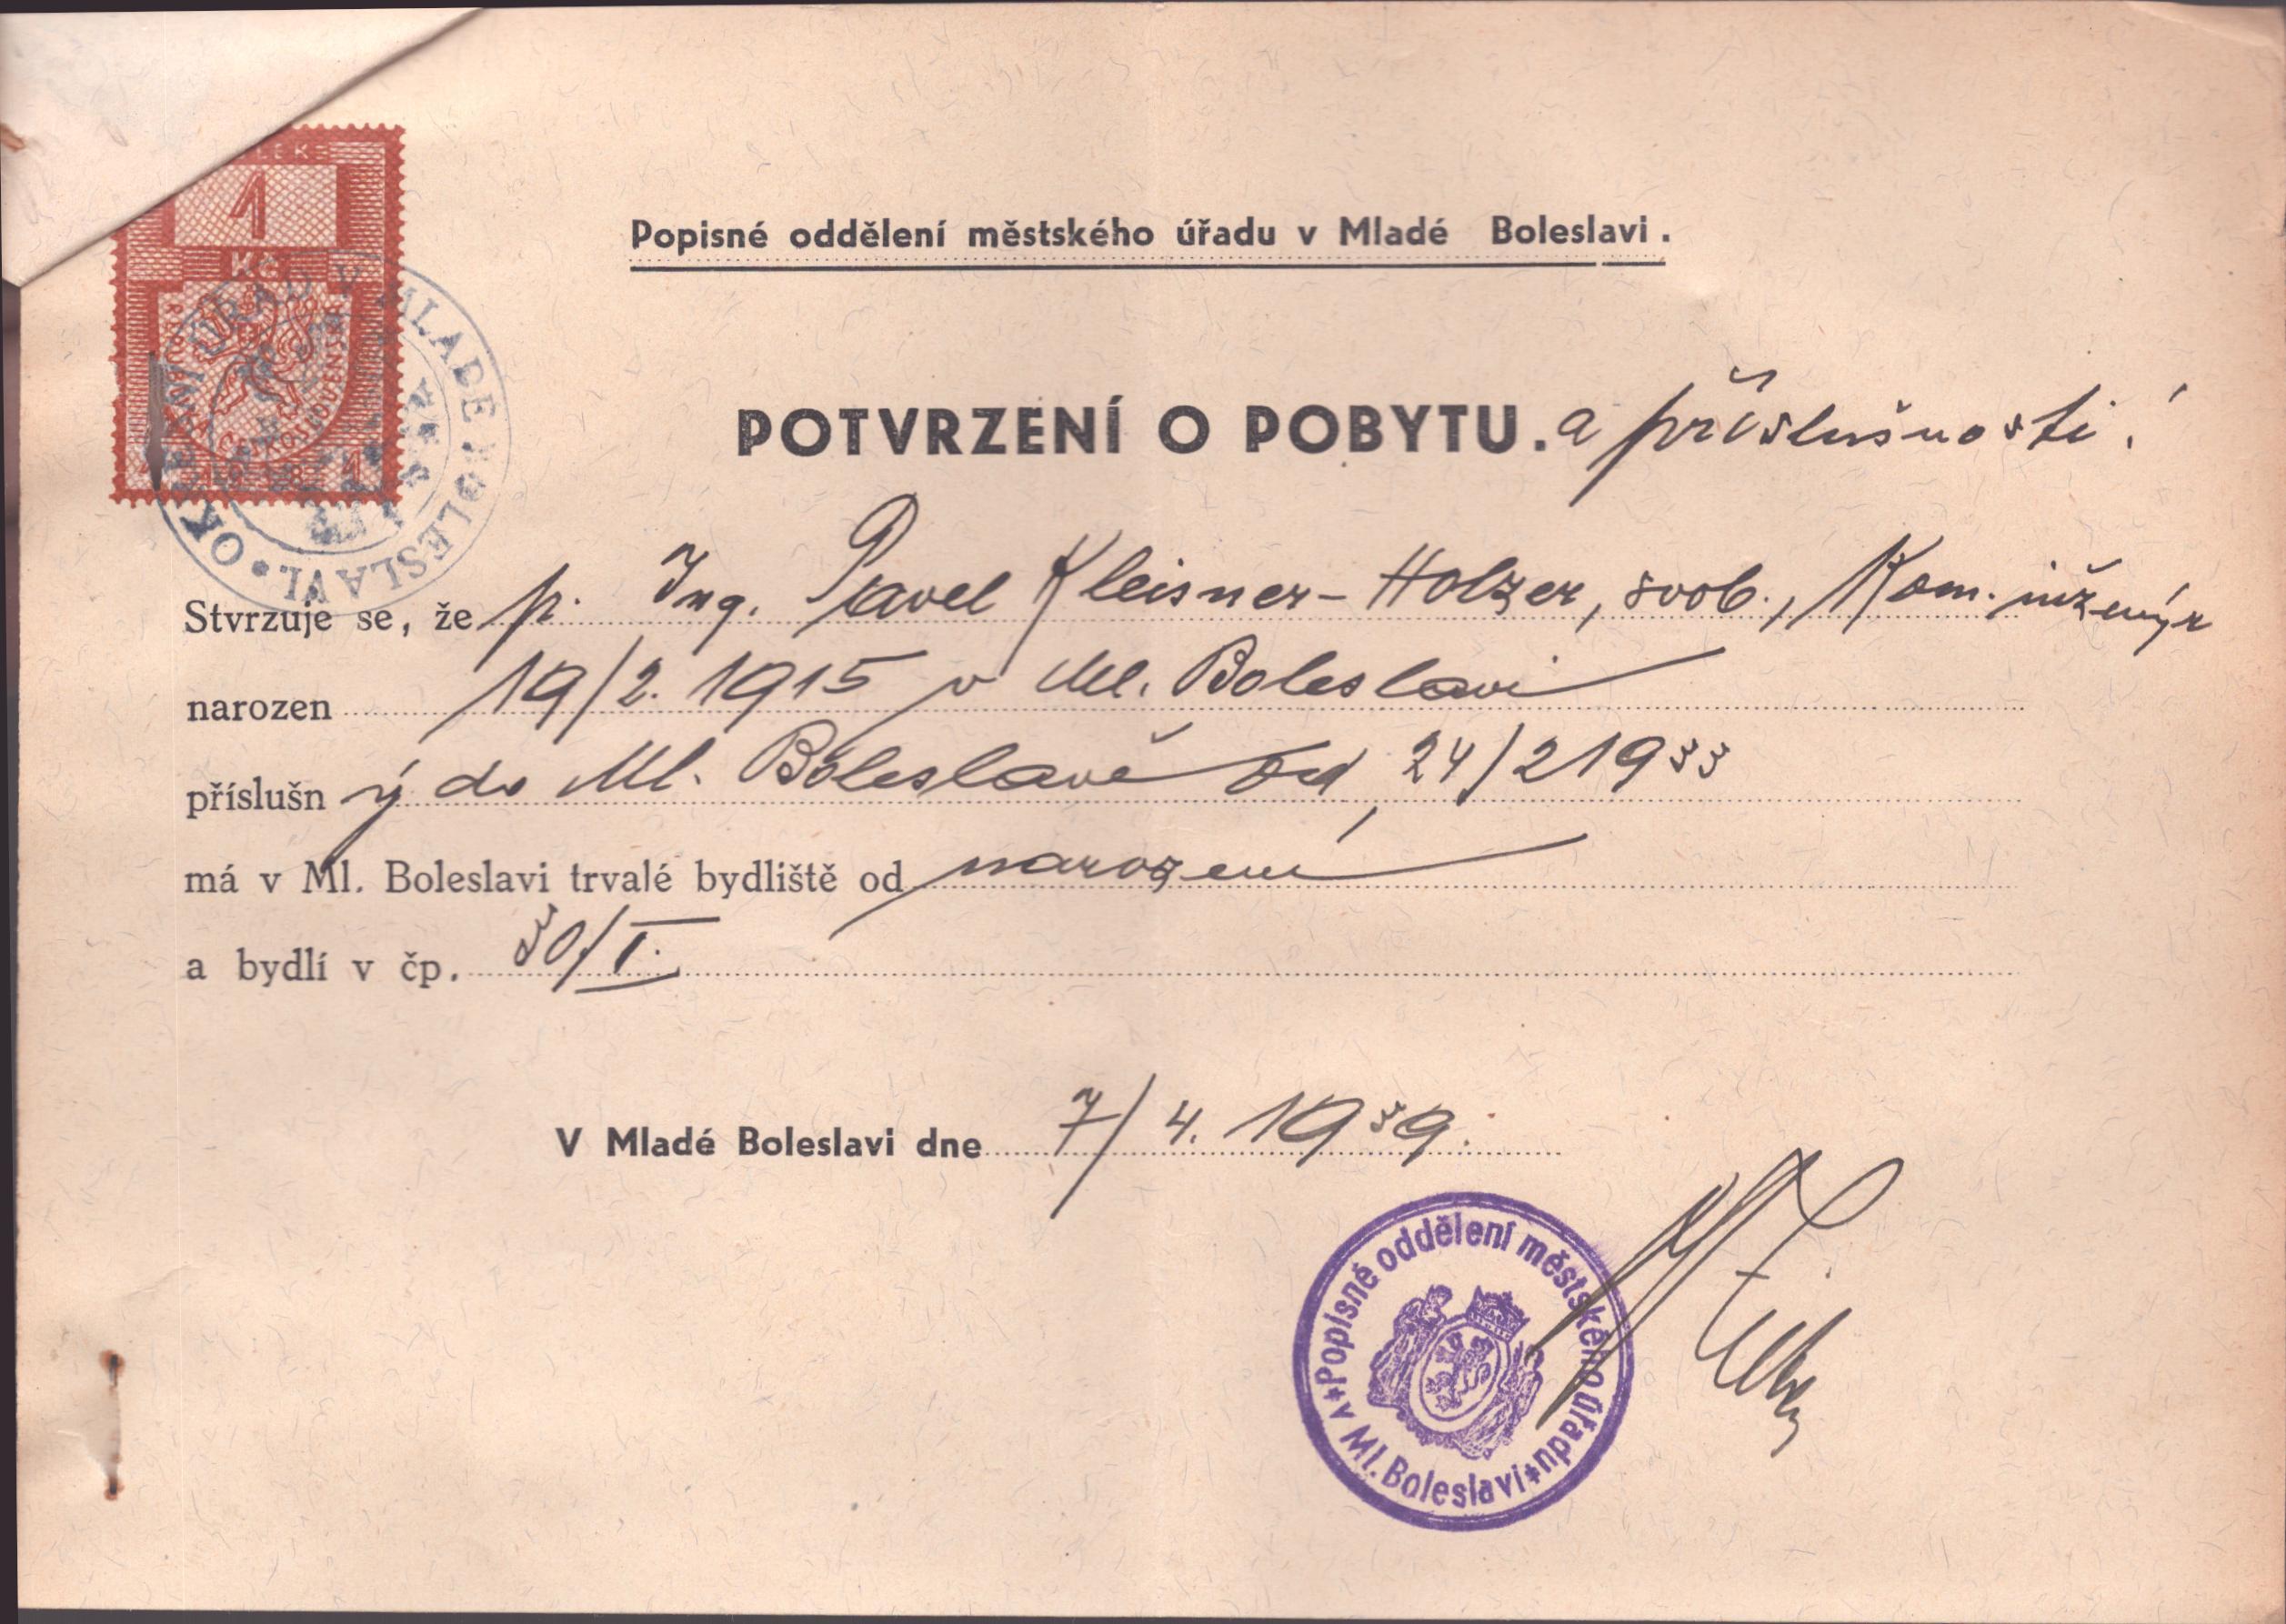 1
Kč
OKRESNÍ ÚŘAD V MLADÉ BOLESLAVI.
Popisné oddělení městského úřadu v Mladé Boleslavi.
POTVRZENÍ O POBYTU. a příslušnosti.
Stvrzuje se, že p. Ing. Pavel Kleisner-Holzer, svob., Kom. inženýr
narozen 19/2. 1915 v Ml. Boleslavi
příslušn ý do Ml. Boleslavě od 24/2 1933
má v Ml. Boleslavi trvalé bydliště od narození
a bydlí v čp. 30/I.
V Mladé Boleslavi dne 7/4. 1939.
Popisné oddělení městského úřadu
v Ml. Boleslavi